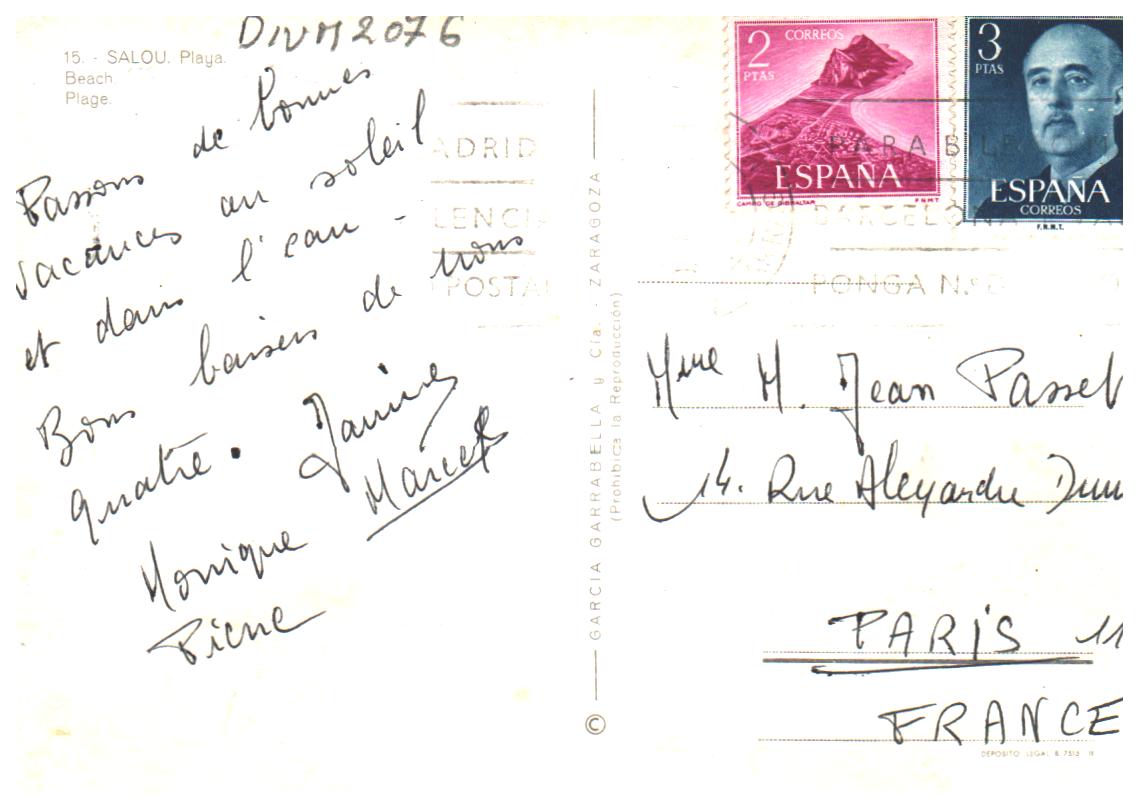 DIVM2076
15. - SALOU. Playa.
Beach.
Plage.
Passons de bonnes
vacances au soleil
et dans l'eau -
Bons baisers de nous
quatre. Janine
Marcel
Monique
Pierre
GARCIA GARRABELLA y Cía. - ZARAGOZA
(Prohibica la Reproducción)
©
2 CORREOS
PTAS
ESPAÑA
CAMPO DE GIBRALTAR F.N.M.T
3
PTAS
ESPAÑA
CORREOS
F.N.M.T.
ADRID
LENCIA
POSTAL
PARA BILBAO M
BARCELONA VA
PONGA N.º D O
Mme M. Jean Passet
14. Rue Alexandre Dum
PARIS 11
FRANCE
DEPOSITO LEGAL B. 7515